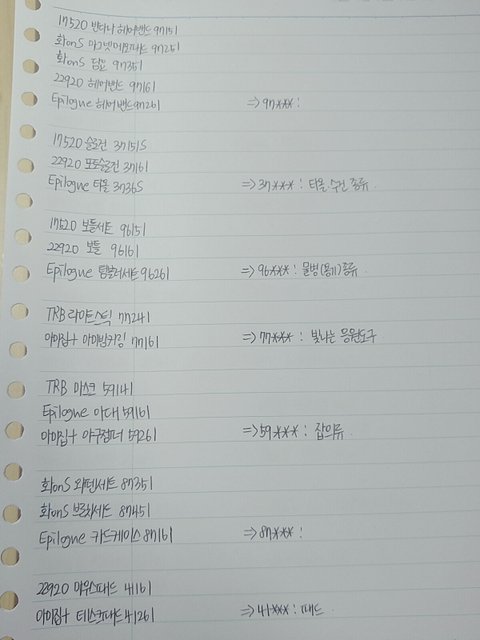 17520 반다나 헤어밴드 97151
화onS 마그넷메모패드 97251
화onS 담요 97351
22920 헤어밴드 97161
Epilogue 헤어밴드 97261 => 97*** :
17520 슬로건 37151S
22920 포토슬로건 37161
Epilogue 타올 37365 => 37*** : 타올 수건 종류.
17520 보틀세트 96151
22920 보틀 96161
Epilogue 텀블러세트 96261 => 96*** : 물병(용기) 종류.
TRB 라이트스틱 77241
아이집+ 아이빔키링 77161 => 77*** : 빛나는 응원도구
TRB 마스크 59141
Epilogue 안대 59161
아이집+ 야구점퍼 59261 => 59*** : 잡의류.
화onS 와펜세트 87351
화onS 브로치세트 87451
Epilogue 카드케이스 87161 => 87*** :
22920 마우스패드 41161
아이집+ 데스크패드 41261 => 41*** : 패드.